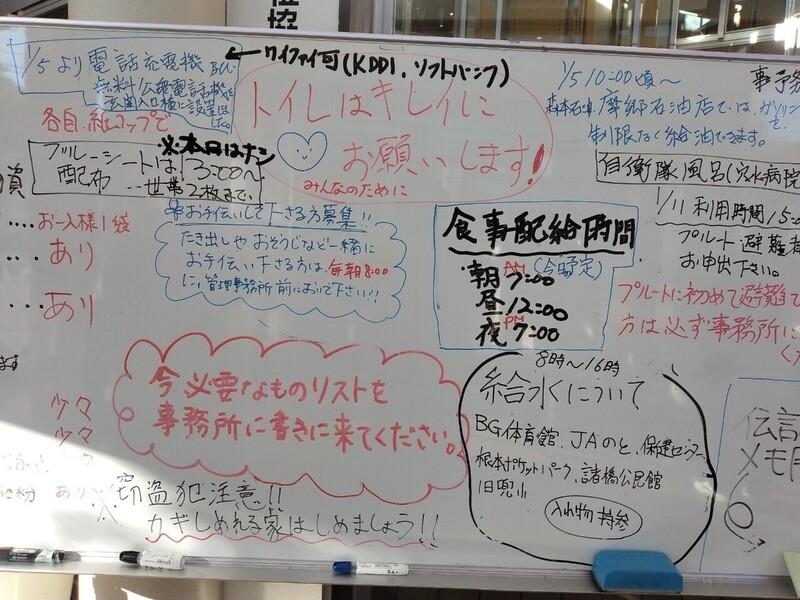 協
1/5より電話充電機
無料公衆電話機を
玄関入口横に設置
←ワイファイ可(KDDI、ソフトバンク)
トイレはキレイに
お願いします!
みんなのために
各自、紙コップで
※本日はナシ
ブルーシートは13:00〜
配布 一世帯2枚まで、
1/5 10:00頃〜
摩郷石油店では、ガソリン
制限なく給油できます。
自衛隊風呂(穴水病院
1/11 利用時間/5:0
プルート避難者
お申出下さい。
プルートに初めて避難で
方は必ず事務所に
くだ
資
....お一人様1袋
....あり
...あり
お手伝いして下さる方募集!!
たき出しや おそうじなど一緒に
お手伝い下さる方は、毎朝8:00
に、管理事務所前においで下さい!!
食事配給時間
(今日予定)
・朝 AM 7:00
昼 12:00
夜 PM 7:00
今必要なものリストを
事務所に書きに来てください。
ます
少々
少々
々
粉 あり
※窃盗犯注意!!
カギしめれる家はしめましょう!!
8時〜16時
給水について
BG体育館、JAのと、保健センター、
根本ポケットパーク、諸橋公民館
旧兜小
入れ物持参
伝言
メモ用